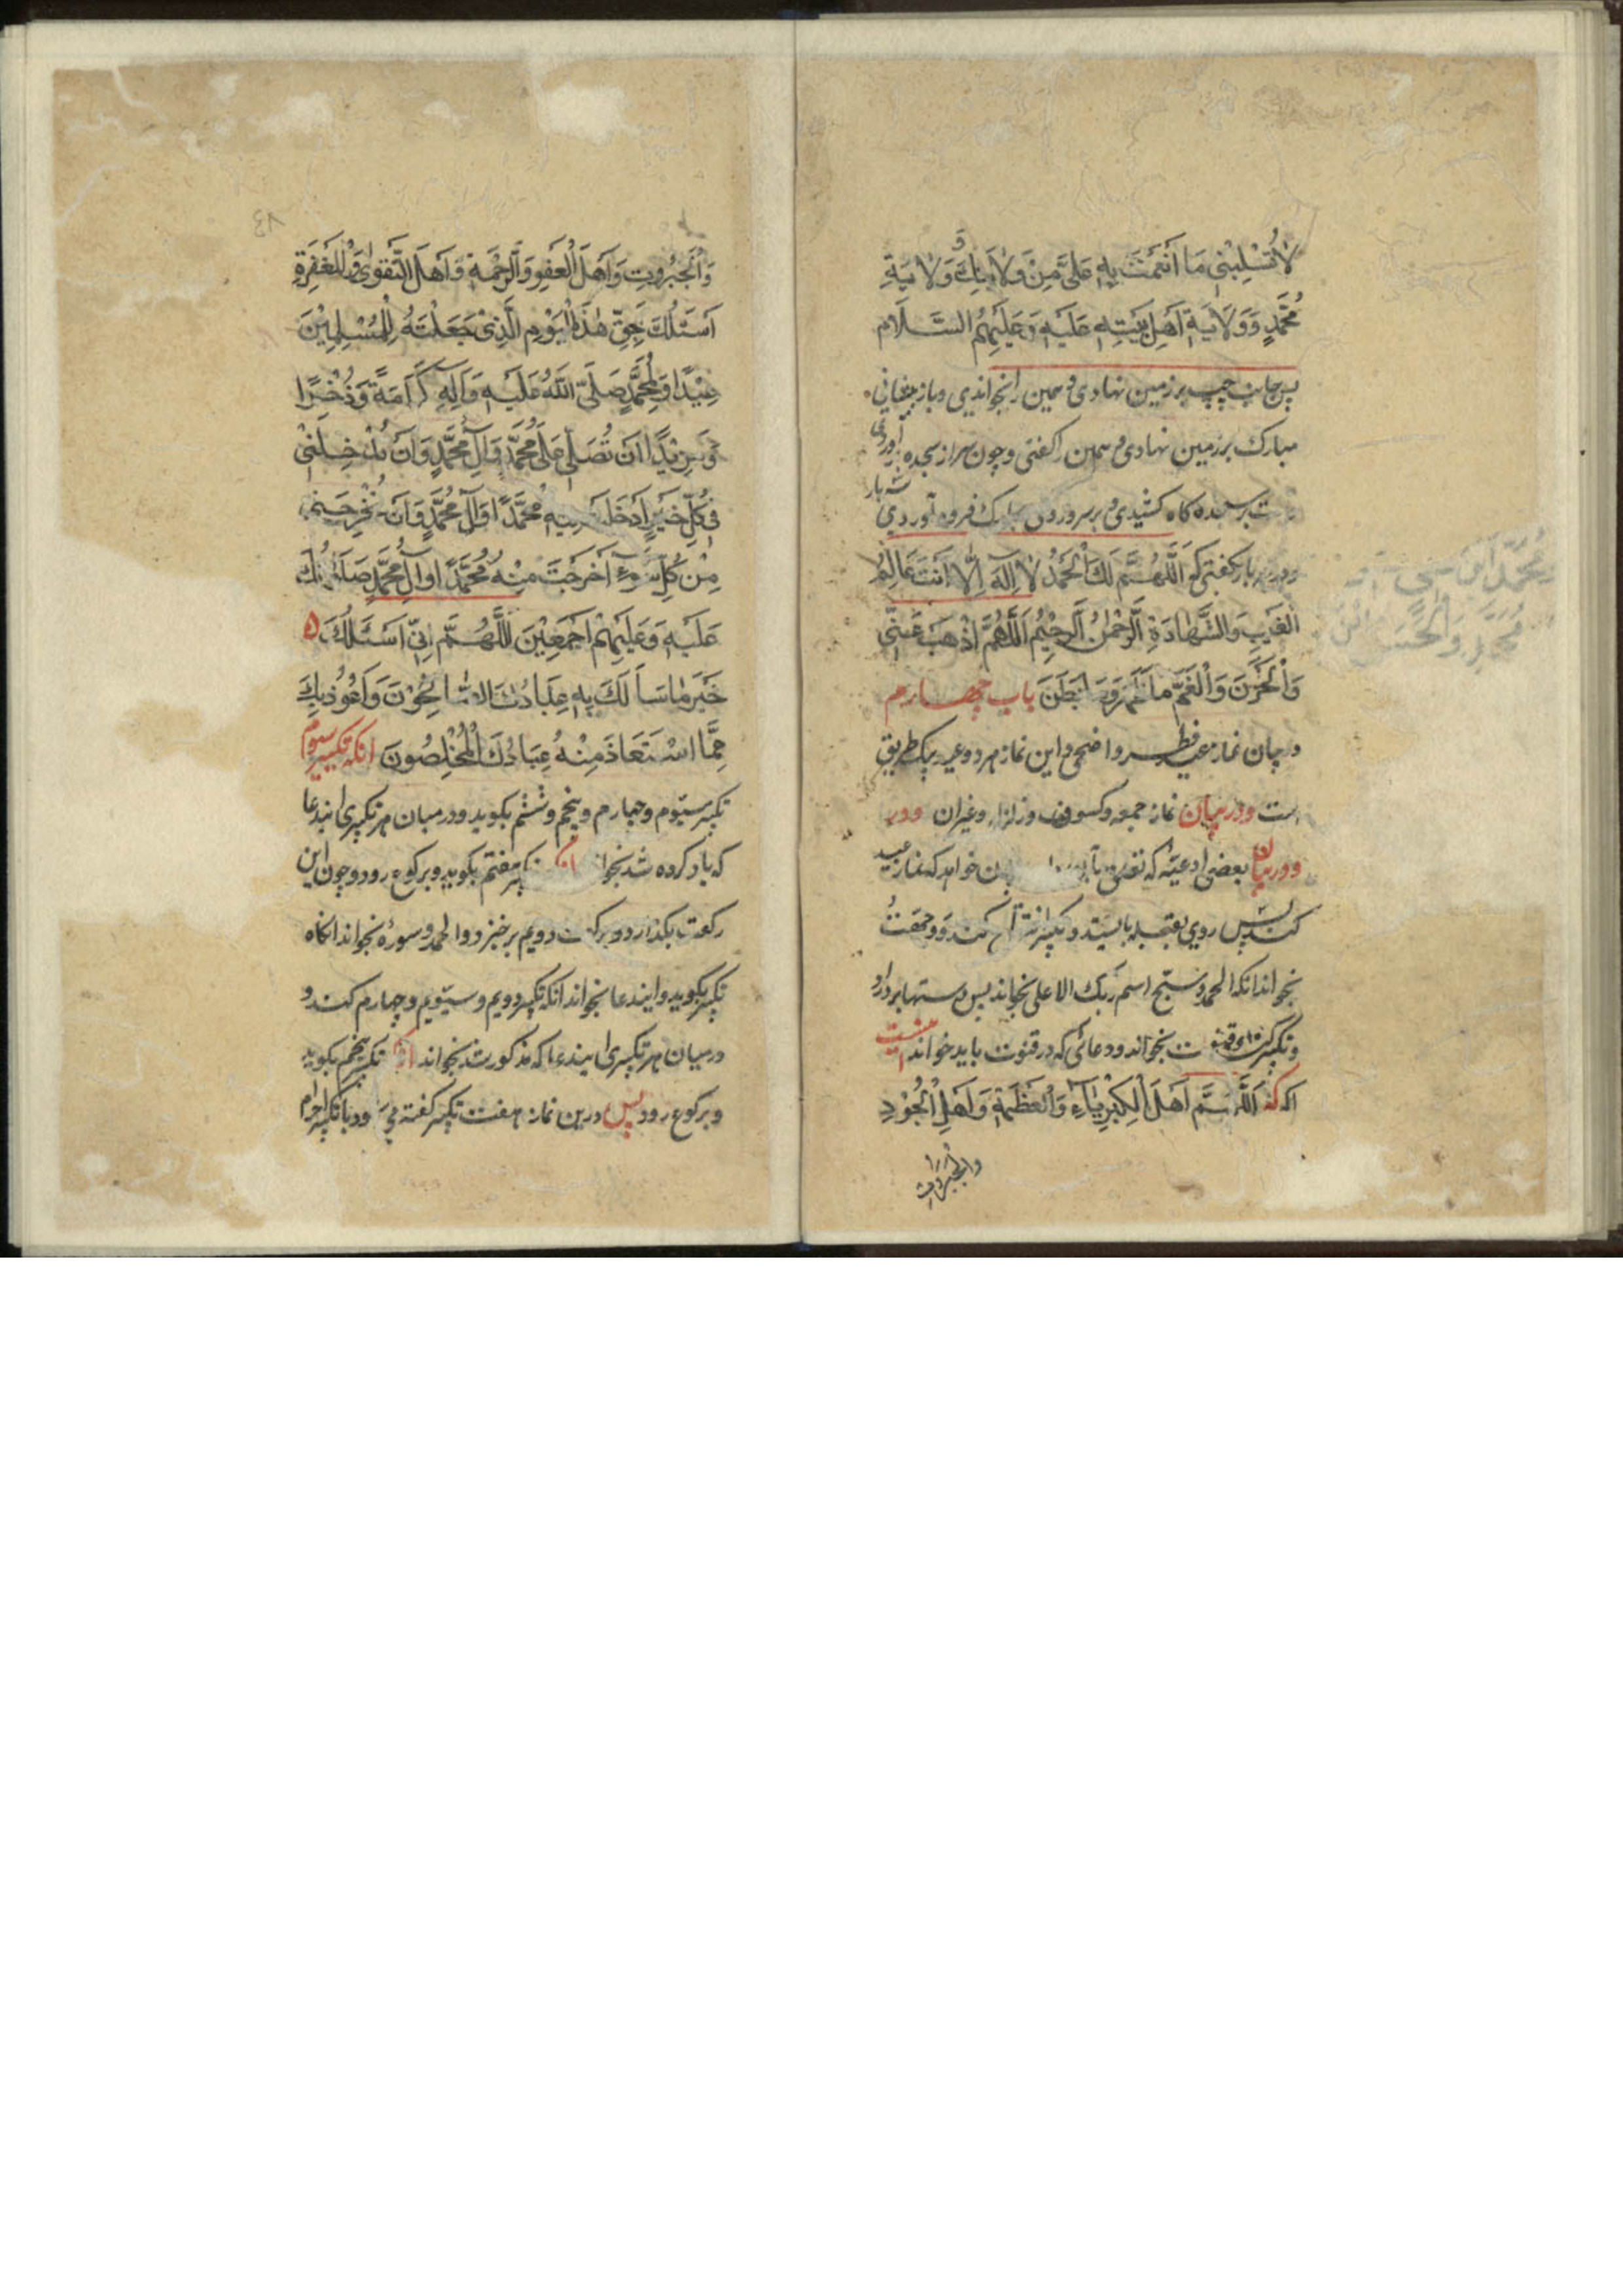 لَا تُسْلِبْنِي مَا أَنْعَمْتَ بِهِ عَلَيَّ مِنْ وَلَايَاتِكَ وَوَلَايَةِ
مُحَمَّدٍ وَوَلَايَةِ اَهْلِ بَيْتِهِ عَلَيْهِ وَعَلَيْهِمُ السَّلَام
پس جانب چپ بر زمین نهادی و همین را بخواندی و باز پیشانی
مبارک بر زمین نهادی و همین را گفتی و چون سر از سجده آوردی
سه بار
بسجده گاه کشیدی و بر سر و روی مبارک فرود آوردی
بار گفتی که اَللَّهُمَّ لَكَ الْحَمْدُ لَا اِلَهَ اِلَّا اَنْتَ عَالِمُ
الْغَيْبِ وَالشَّهَادَةِ الرَّحْمٰنُ الرَّحِيْمُ اَللَّهُمَّ اذْهَبْ عَنِّي
وَالْحَزَنَ وَالْغَمَّ مَا ظَهَرَ وَمَا بَطَنَ باب چهارم
در بیان نماز عید فطر و اضحی و این نماز هر دو عید بیک طریق
است و در بیان نماز جمعه و کسوف و زلزله و غیر آن و در
و در بیان بعضی ادعیه که تعلق بآن خواهد که نماز عید
کند پس روی بقبله بایستد و تکبیر افتتاح کند و وجهت
بخواند آنگه الحمد و سبح اسم ربک الاعلی بخواند پس دستها بردارد
و تکبیر دعای قنوت بخواند و دعائی که در قنوت باید خواند اینست
که اَللّٰهُمَّ اَهْلَ الْكِبْرِيَاءِ وَالْعَظَمَةِ وَاَهْلِ الْجُوْدِ
والجبروت
مُحَمَّدِ ابن
مُحَمَّدٍ وَالْحَسَنِ ابن
٨٤
وَالْجَبَرُوتِ وَاَهْلَ الْعَفْوِ وَالرَّحْمَةِ وَاَهْلَ التَّقْوٰى وَالْمَغْفِرَةِ
اَسْئَلُكَ بِحَقِّ هٰذَا الْيَوْمِ الَّذِىْ جَعَلْتَهُ لِلْمُسْلِمِيْنَ
عِيْدًا وَلِمُحَمَّدٍ صَلَّى اللّٰهُ عَلَيْهِ وَاٰلِهِ كَرَامَةً وَذُخْرًا
وَمَزِيْدًا اَنْ تُصَلِّيَ عَلٰى مُحَمَّدٍ وَاٰلِ مُحَمَّدٍ وَاَنْ تُدْخِلَنِيْ
فِي كُلِّ خَيْرٍ اَدْخَلْتَ فِيْهِ مُحَمَّدًا وَاٰلَ مُحَمَّدٍ وَاَنْ تُخْرِجَنِيْ
مِنْ كُلِّ سُوْءٍ اَخْرَجْتَ مِنْهُ مُحَمَّدًا وَاٰلَ مُحَمَّدٍ صَلَوَاتُكَ
عَلَيْهِ وَعَلَيْهِمْ اَجْمَعِيْنَ اَللّٰهُمَّ اِنِّي اَسْئَلُكَ
خَيْرَ مَا سَاَلَكَ بِهِ عِبَادُكَ الصَّالِحُوْنَ وَاَعُوْذُ بِكَ
مِمَّا اسْتَعَاذَ مِنْهُ عِبَادُكَ الْمُخْلِصُونَ آنگه تکبیر سیوم
تکبیر سیوم و چهارم و پنجم و ششم بکوید و در میان هر تکبیری ایندعا
که یاد کرده شد بخواند تکبیر هفتم بکوید و برکوع رود و چون این
رکعت بکذارد و برکعت دویم برخیزد والحمد و سوره بخواند آنکاه
تکبیر بکوید و ایندعا بخواند آنکه تکبیر دویم و سیوم و چهارم کند و
در میان هر تکبیری ایندعا که مذکور شد بخواند تکبیر پنجم بکوید
و برکوع رود پس درین نماز هفت تکبیر گفته و با تکبیر احرام